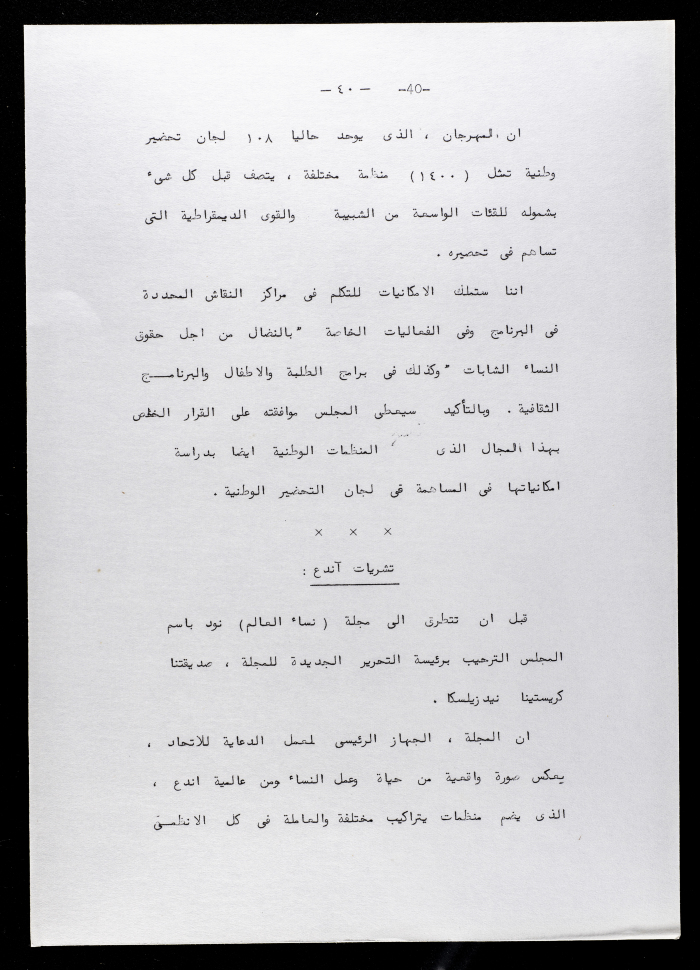 -٤٠- -40-
ان المهرجان ، الذى يوحد حاليا ١٠٨ لجان تحضير
وطنية تمثل (١٤٠٠) منظمة مختلفة ، يتصف قبل كل شىء
بشموله للفئات الواسعة من الشبيبة والقوى الديمقراطية التى
تساهم فى تحضيره .
اننا ستملك الامكانيات للتكلم فى مراكز النقاش المحددة
فى البرنامج وفى الفعاليات الخاصة "بالنضال من اجل حقوق
النساء الشابات "وكذلك فى برامج الطلبة والاطفال والبرنامـــج
الثقافية . وبالتأكيد سيعطى المجلس موافقته على القرار الخاص
بهذا المجال الذى المنظمات الوطنية ايضا بدراسة
امكانياتها فى المساهمة فى لجان التحضير الوطنية .
× × ×
نشريات آندع :
قبل ان نتطرق الى مجلة (نساء العالم) نود باسم
المجلس الترحيب برئيسة التحرير الجديدة للمجلة ، صديقتنا
كريستينا نيدزيلسكا .
ان المجلة ، الجهاز الرئيسى لعمل الدعاية للاتحاد ،
يعكس صورة واقعية من حياة وعمل النساء ومن عالمية اندع ،
الذى يضم منظمات بتراكيب مختلفة والعاملة فى كل الانظمـــة